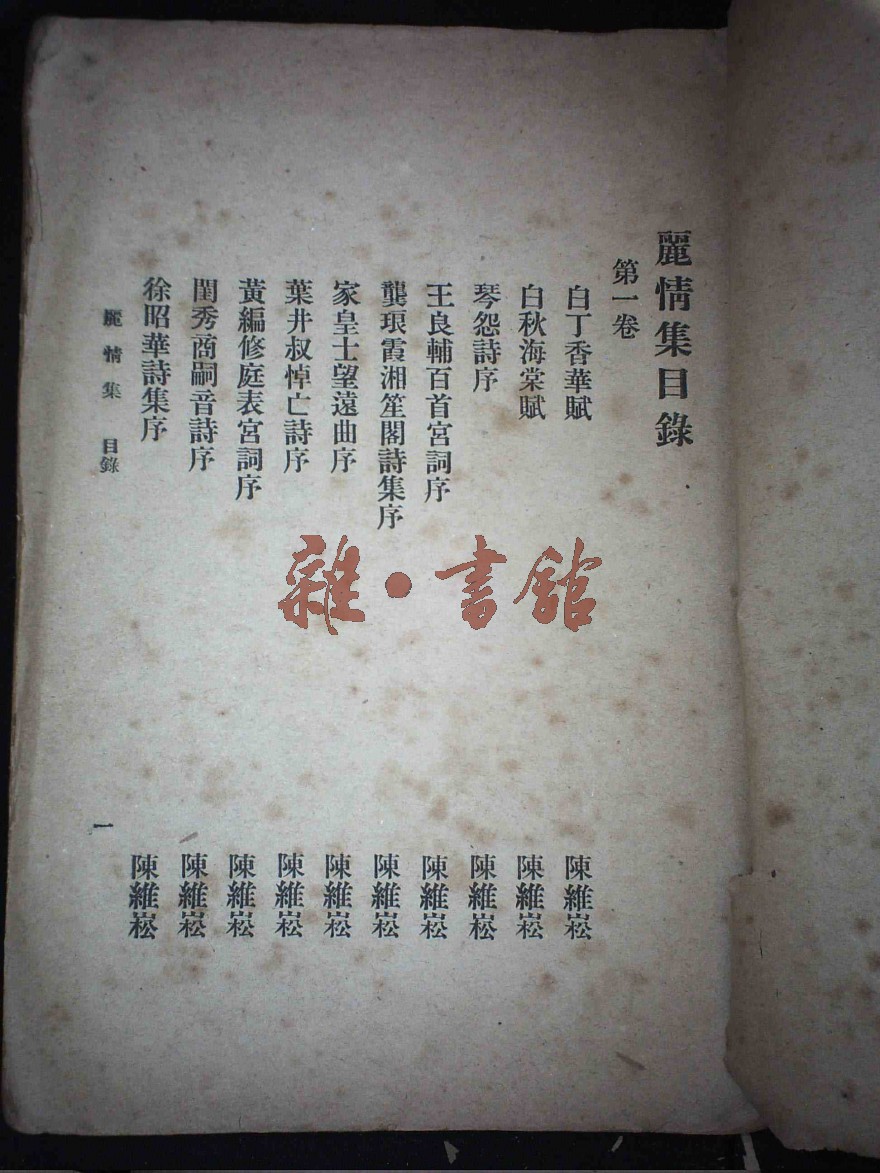 麗情集目錄
第一卷
白丁香華賦 陳維崧
白秋海棠賦 陳維崧
琴怨詩序 陳維崧
王良輔百首宮詞序 陳維崧
龔琅霞湘笙閣詩集序 陳維崧
家皇士望遠曲序 陳維崧
葉井叔悼亡詩序 陳維崧
黃編修庭表宮詞序 陳維崧
閨秀商嗣音詩序 陳維崧
徐昭華詩集序 陳維崧
麗情集 目錄 一
雜·書館